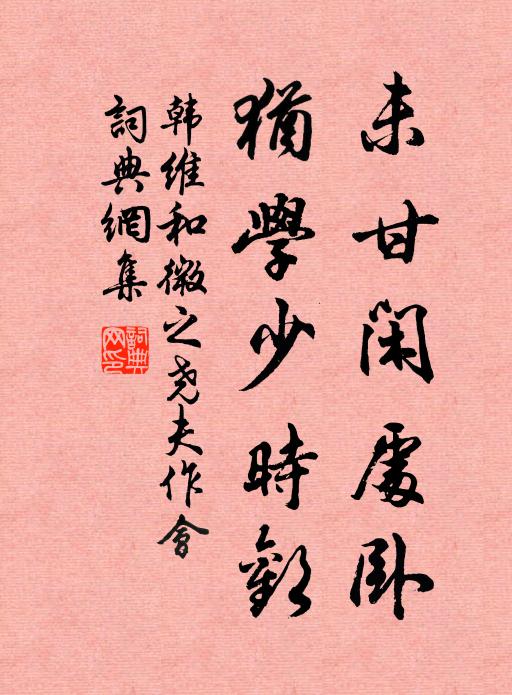 未甘閑處卧
猶學少時歡
韩维和微之尧夫作會
詞典網集
詞典网印